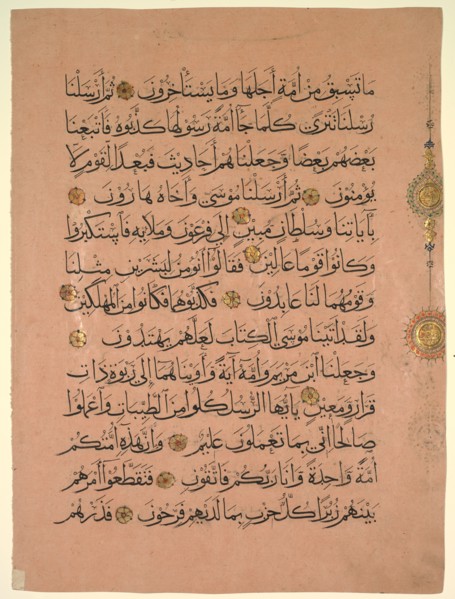 ما تسبق من أمة أجلها وما يستأخرون ثم أرسلنا
رسلنا تترى كلما جا أمة رسولها كذبوه فأتبعنا
بعضهم بعضا وجعلناهم أحاديث فبعدا لقوم لا
يومنون ثم أرسلنا موسى وأخاه هارون
بآياتنا وسلطان مبين إلى فرعون وملايه فاستكبروا
وكانوا قوما عالين فقالوا أنومن لبشرين مثلنا
وقومهما لنا عابدون فكذبوهما فكانوا من المهلكين
ولقد آتينا موسى الكتاب لعلهم يهتدون
وجعلنا ابن مريم وأمه آية وآويناهما إلى ربوة ذات
قرار ومعين يا أيها الرسل كلوا من الطيبات واعملوا
صالحا إني بما تعملون عليم وإن هذه أمتكم
أمة واحدة وأنا ربكم فاتقون فتقطعوا أمرهم
بينهم زبرا كل حزب بما لديهم فرحون فذرهم